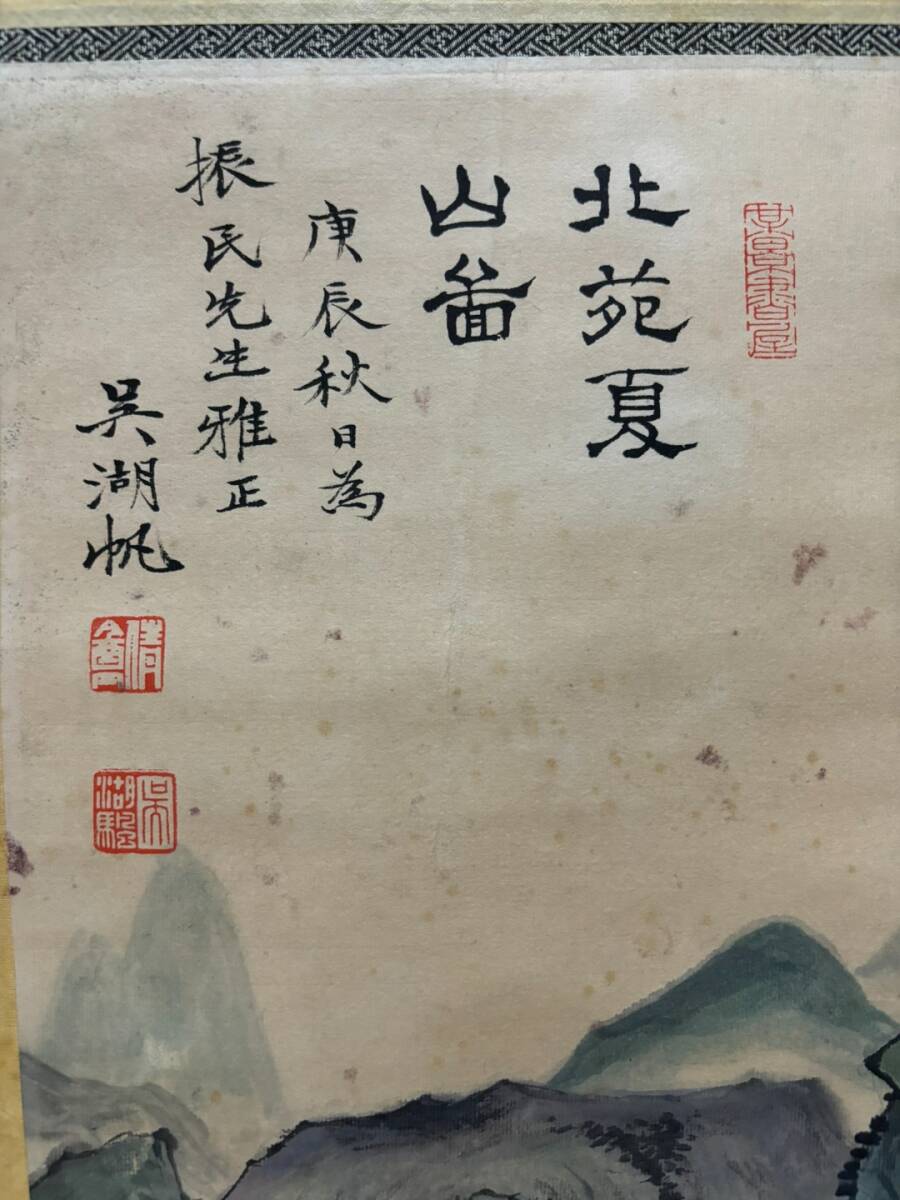 北苑夏
山啚
庚辰秋日為
振民先生雅正
吴湖帆
倩盦
吴湖颿